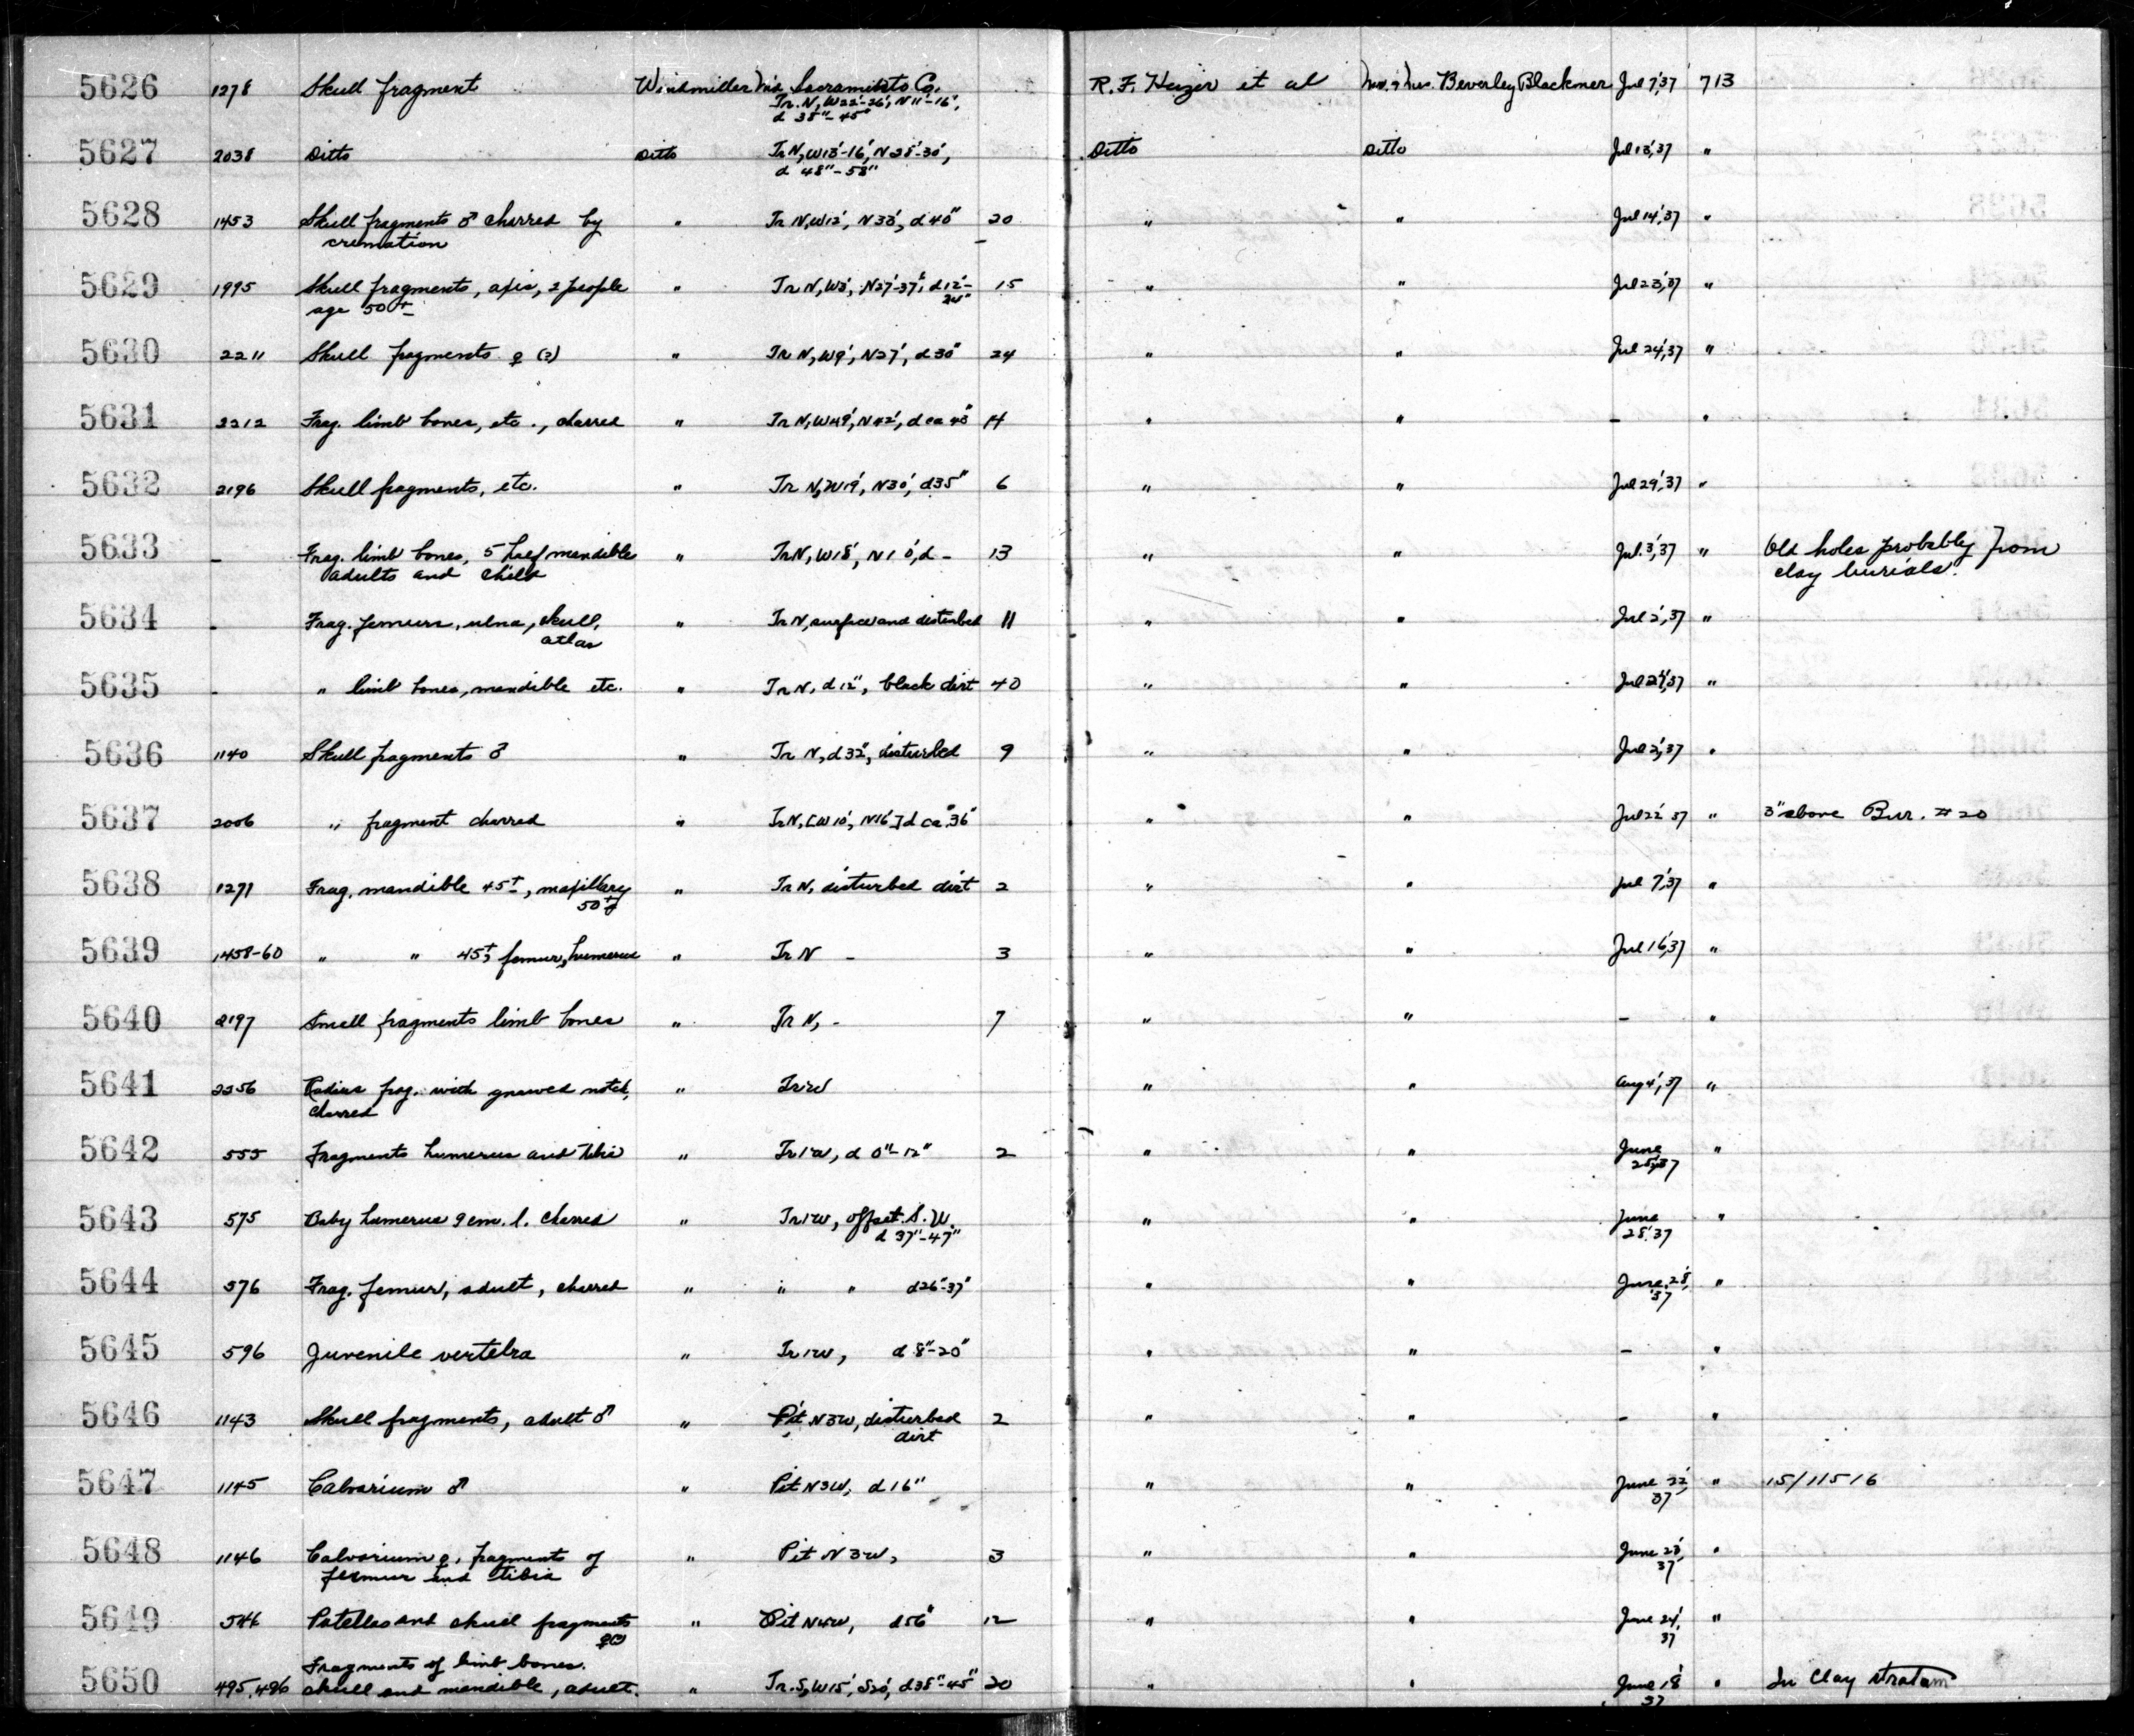 5626 1278 Skull fragment Windmiller Md. Sacramento Co. R. F. Heizer et al Mr. & Mrs. Beverley Blackmer Jul 7,'37 713
Tr. N, W22'-26', N11'-16',
d 38"-45"
5627 2038 Ditto Ditto Tr N, W13'-16', N28'-30', Ditto Ditto Jul 13,'37 "
d 48"-58"
5628 1453 Skull fragments ♂ charred by " Tr N, W12', N33', d 40" 20 " " Jul 14,'37 "
cremation
5629 1995 Skull fragments, axis, 2 people " Tr N, W3', N27'-37', d 12"- 15 " " Jul 23,'37 "
age 50± 24"
5630 2211 Skull fragments ♀ (?) " Tr N, W9', N27', d 30" 24 " " Jul 24,'37 "
5631 2212 Frag. limb bones, etc., charred " Tr N, W49', N42', d ca 48" 14 " " - "
5632 2196 Skull fragments, etc. " Tr N, W19', N30', d 35" 6 " " Jul 29,'37 "
5633 - Frag. limb bones, 5 half mandibles " Tr N, W18', N10', d - 13 " " Jul. 3,'37 " Old holes probably from
adults and child clay burials.
5634 - Frag. femurs, ulna, skull, " Tr N, surface and disturbed 11 " " Jul 2,'37 "
atlas
5635 - " limb bones, mandible etc. " Tr N, d 12", black dirt 40 " " Jul 24,'37 "
5636 1140 Skull fragments ♂ " Tr N, d 32", disturbed 9 " " Jul 2,'37 "
5637 2006 " fragment charred " Tr N, [W10', N16'] d ca. 36" " " Jul 22 '37 " 3" above Bur. #20
5638 1271 Frag. mandible 45±, maxillary " Tr N, disturbed dirt 2 " " Jul 7,'37 "
50±
5639 1458-60 " " 45± femur, humerus " Tr N - 3 " " Jul 16,'37 "
5640 2197 Small fragments limb bones " Tr N, - 7 " " - "
5641 2256 Radius frag. with gnawed notch, " Tr 1W " " Aug 4,'37 "
charred
5642 555 Fragments humerus and tibia " Tr 1W, d 0"-12" 2 " " June "
25,'37
5643 575 Baby humerus 9 cm. l. charred " Tr 1W, offset S.W. " " June "
d 37"-47" 28,'37
5644 576 Frag. femur, adult, charred " " " d 26"-37" " " June 28, "
'37
5645 596 Juvenile vertebra " Tr 1W, d 8"-20" " " - "
5646 1143 Skull fragments, adult ♂ " Pit N3W, disturbed 2 " " - "
dirt
5647 1145 Calvarium ♂ " Pit N3W, d 16" " " June 22, " 15/11516
'37
5648 1146 Calvarium ♀, fragments of " Pit N3W, 3 " " June 23, "
femur and tibia '37
5649 544 Patellas and skull fragments " Pit N4W, d 56" 12 " " June 24, "
♀(?) '37
Fragments of limb bones.
5650 495,496 skull and mandible, adult. " Tr. S, W15', S20', d 38"-45" 20 " " June 18 " In Clay stratum
'37